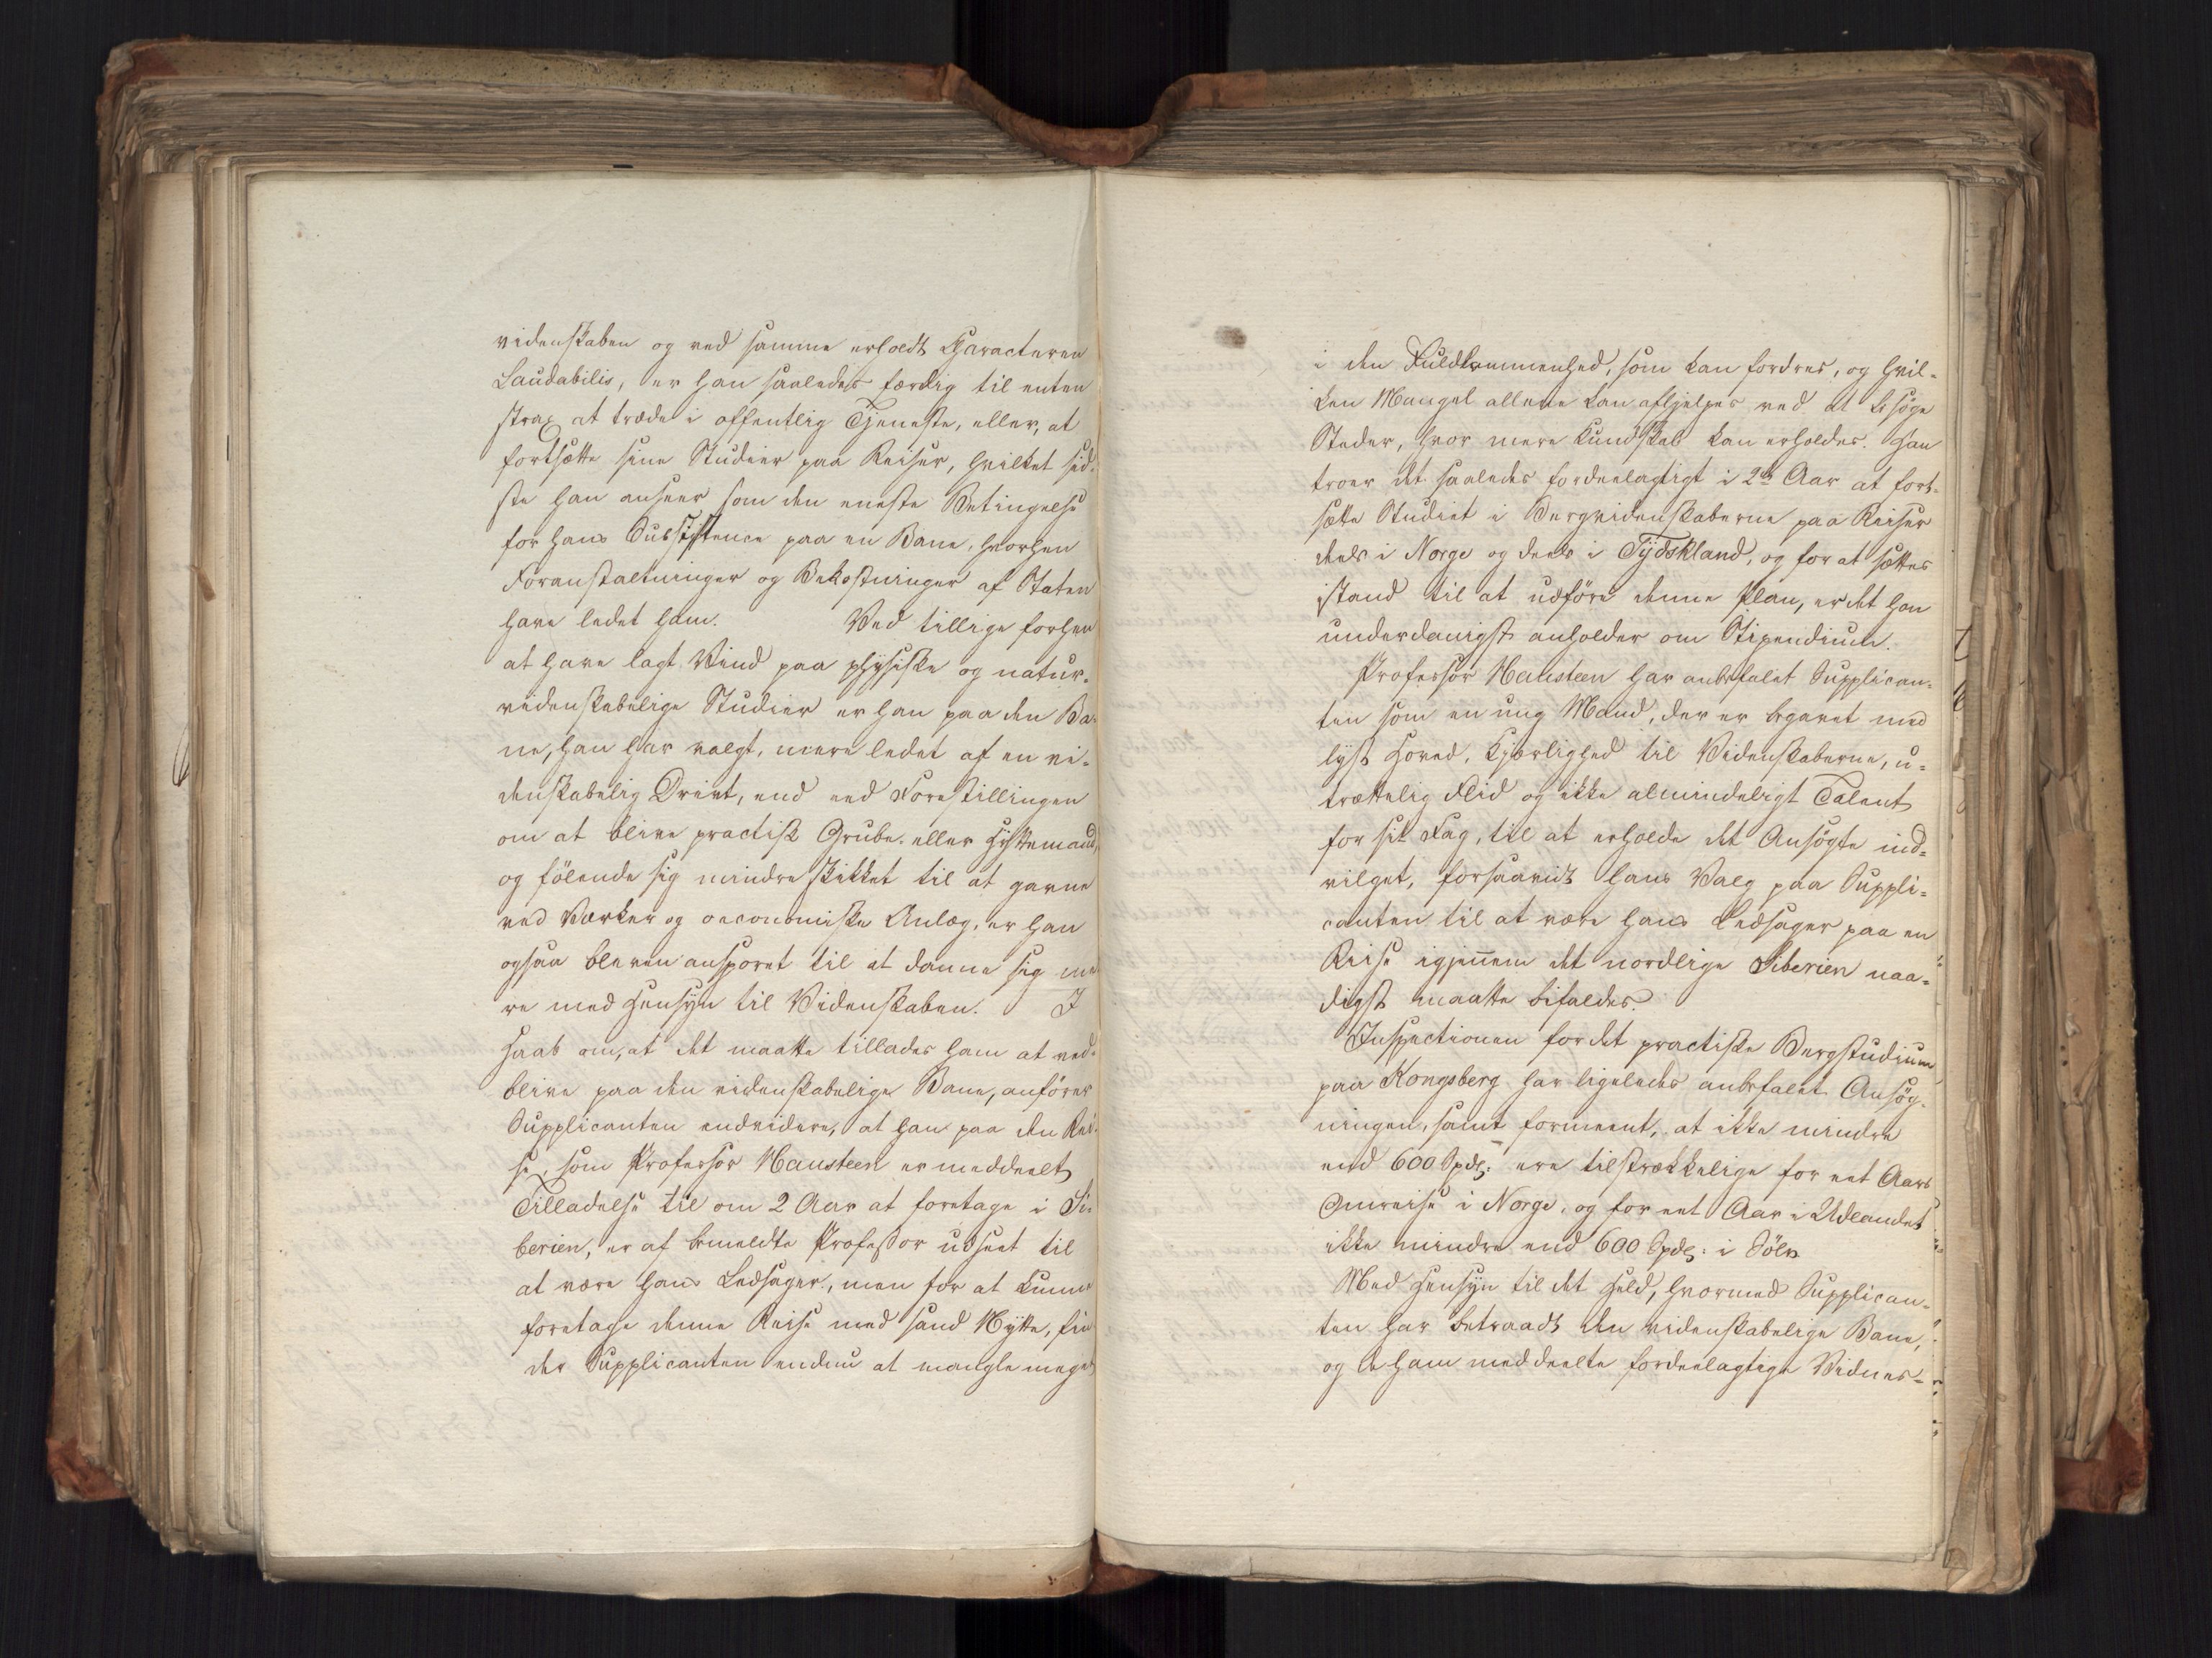 videnskaben og ved samme erholdt Characteren
Laudabilis, er han saaledes færdig til enten
strax at træde i offentlig Tjeneste, eller, at
fortsætte sine Studier paa Reiser, hvilket sid-
ste han anseer som den eneste Betingelse
for hans Subsistence paa en Bane, hvorhen
Foranstaltninger og Bekostninger af Staten
have ledet ham. Ved tillige forhen
at have lagt Vind paa physiske og natur-
videnskabelige Studier er han paa den Ba-
ne, han har valgt, mere ledet af en vi-
denskabelig Drivt, end ved Forestillingen
om at blive practisk Grube- eller Hyttemand,
og fölende sig mindre skikket til at gavne
ved Værker og oeconomiske Anlæg, er han
ogsaa bleven ansporet til at danne sig me
re med Hensyn til Videnskaben. I
Haab om, at det maatte tillades ham at ved-
blive paa den videnskabelige Bane, anförer
Supplicanten endvidere, at han paa den Rei-
se, som Professor Hansteen er meddeelt
Tilladelse til om 2 Aar at foretage i Si-
berien, er af bemeldte Professor udseet til
at være hans Ledsager, men for at kunne
foretage denne Reise med sand Nytte, fin
der Supplicanten endnu at mangle meget
i den Fuldkommenhed, som kan fordres, og hvil-
ken Mangel allene kan afhjelpes ved at besöge
Steder, hvor mere Kundskab kan erholdes. Han
troer det saaledes fordeelagtigt i 2de Aar at fort-
sætte Studiet i Bergvidenskaberne paa Reiser
deels i Norge og deels i Tydskland, og for at sættes
istand til at udföre denne Plan, er det han
underdanigst anholder om Stipendium.
Professor Hansteen har anbefalet Supplican-
ten som en ung Mand, der er begavet med
lyst Hoved, Kjærlighed til Videnskaberne, u-
trættelig Flid og ikke almindeligt Talent
for sit Fag, til at erholde det Ansögte ind-
vilget, forsaavidt hans Valg paa Suppli-
canten til at være hans Ledsager paa en
Reise igjennem det nordlige Siberien naa-
digst maatte bifaldes.
Inspectionen for det practiske Bergstudium
paa Kongsberg har ligeledes anbefalet Ansög-
ningen, samt formeent, at ikke mindre
end 600 Spdlr: ere tilstrækkelige for eet Aars
Omreise i Norge, og for eet Aar i Udlandet
ikke mindre end 600 Spdlr: i Sölv.
Med Hensyn til det Held, hvormed Supplican-
ten har betraadt den videnskabelige Bane,
og de ham meddeelte fordeelagtige Vidnes-